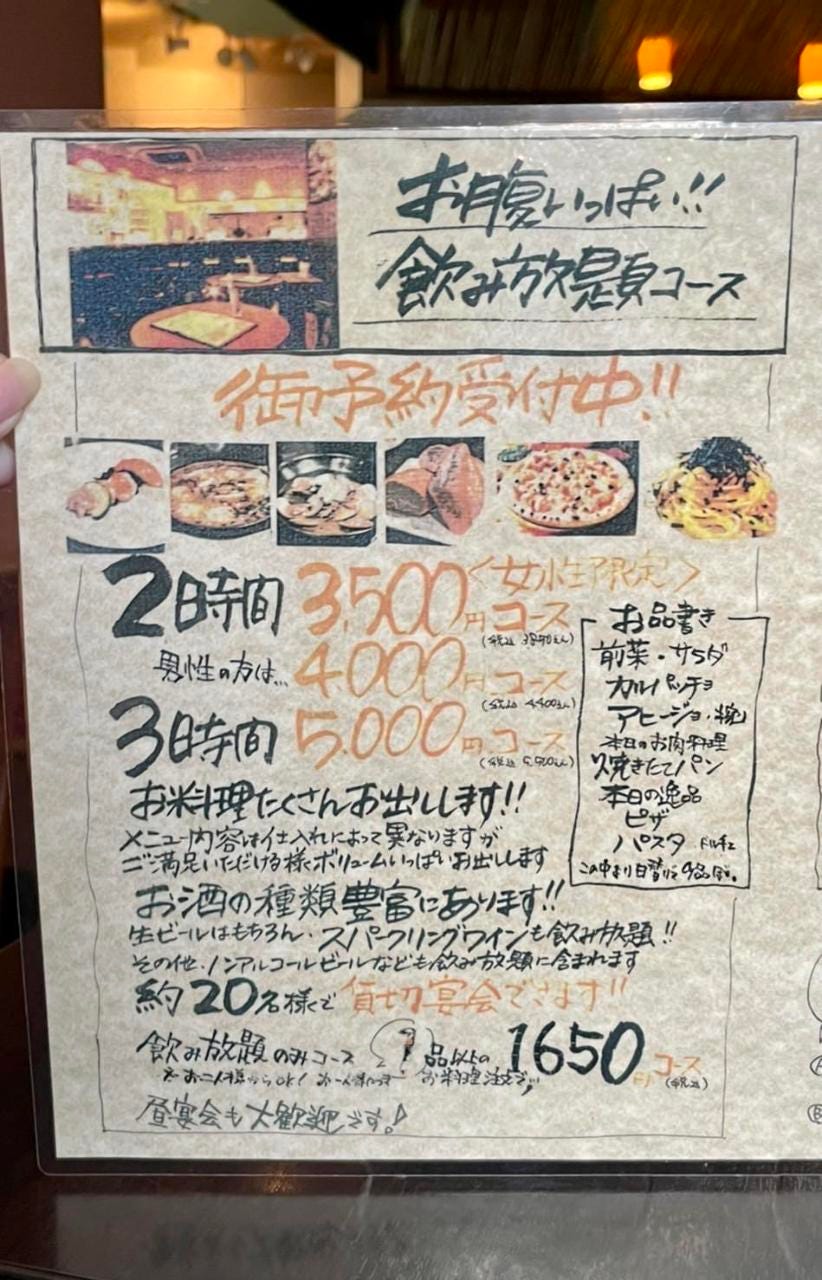 お腹いっぱい!!
飲み放題コース
御予約受付中!!
2時間 3,500円コース <女性限定>
(税込 3850えん)
男性の方は… 4,000円コース
(税込 4,400えん)
3時間 5,000円コース
(税込 5,500えん)
お料理たくさんお出しします!!
メニュー内容は仕入れによって異なりますが
ご満足いただける様、ボリュームいっぱいお出しします
お品書き
前菜・サラダ
カルパッチョ
アヒージョ・
本日のお肉料理
焼きたてパン
本日の逸品
ピザ
パスタ ドルチェ
この中より日替りで
お酒の種類豊富にあります!!
生ビールはもちろん、スパークリングワインも飲み放題!!
その他、ノンアルコールビールなども飲み放題に含まれます
約20名様で貸切宴会できます!!
飲み放題のみコース 品以上の 1650円コース
(税込)
お二人様からOK! お一人様 お料理注文で
昼宴会も大歓迎です♪